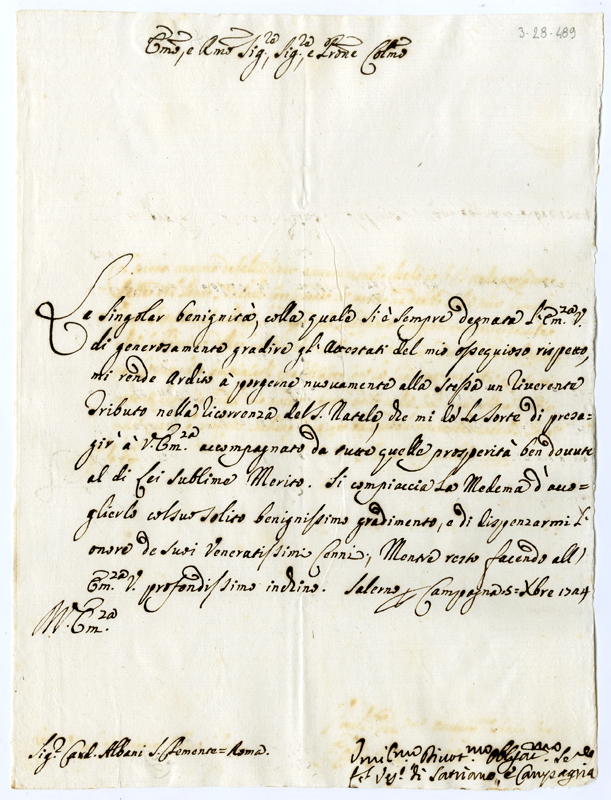 3-28-489
Emo, e Rmo Sig.re, Sig.re, e Prone Colmo
La singolar benignità, colla quale si è sempre degnata l'Em.za V.
di generosamente gradire gl'Attestati del mio ossequioso rispetto,
mi rende Ardito à porgerne nuovamente alla stessa un riverente
Tributo nella ricorrenza del S. Natale, che mi dò La sorte di presa=
gir à V. Em.za accompagnato da tutte quelle prosperità ben dovute
al di Lei sublime Merito. Si compiaccia La Medema d'acco=
glierlo col suo solito benignissimo gradimento, e di dispenzarmi l'
onore de suoi Veneratissimi Cenni, Mentre resto facendo all'
Em.za V. profondissimo inchino. Salerno Campagna 5= Xbre 1724
V. Em.za
Sig.r Card. Albani S. Clemente= Roma.
Umilmo Divot.mo Obblat.mo Se.re
di Satriano, e Campagna